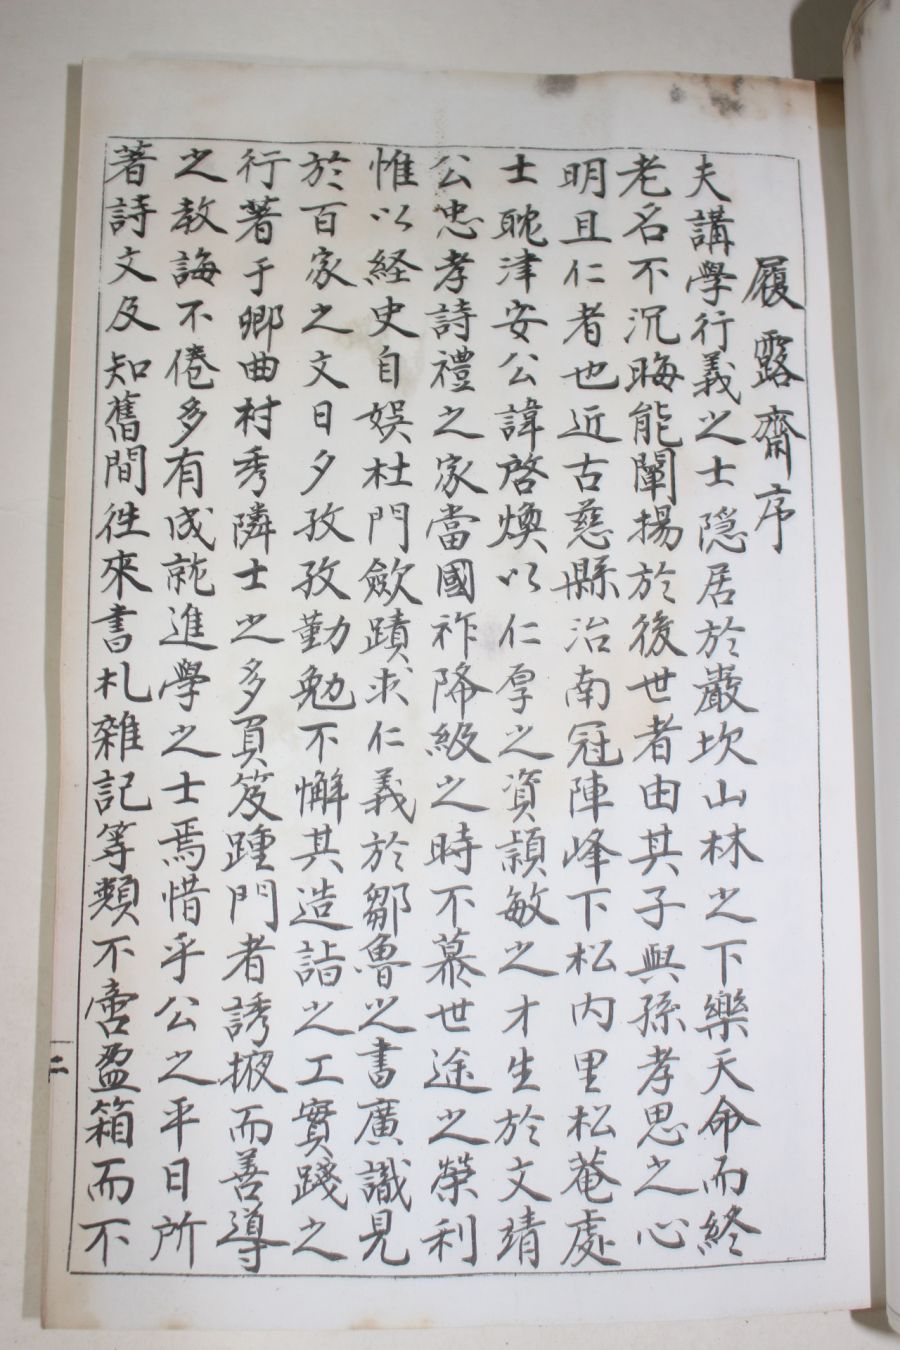 履露齋序
夫講學行義之士隱居於巖坎山林之下樂天命而終
老名不沉晦能闡揚於後世者由其子與孫孝思之心
明且仁者也近古慈縣治南冠陣峰下松內里松菴處
士耽津安公諱啓煥以仁厚之資穎敏之才生於文靖
公忠孝詩禮之家當國祚降級之時不慕世途之榮利
惟以経史自娛杜門歛蹟求仁義於鄒魯之書廣識見
於百家之文日夕孜孜勤勉不懈其造詣之工實踐之
行著于鄉曲村秀隣士之多負笈踵門者誘掖而善導
之教誨不倦多有成就進學之士焉惜乎公之平日所
著詩文及知舊間徃來書札雜記等類不啻盈箱而不
二